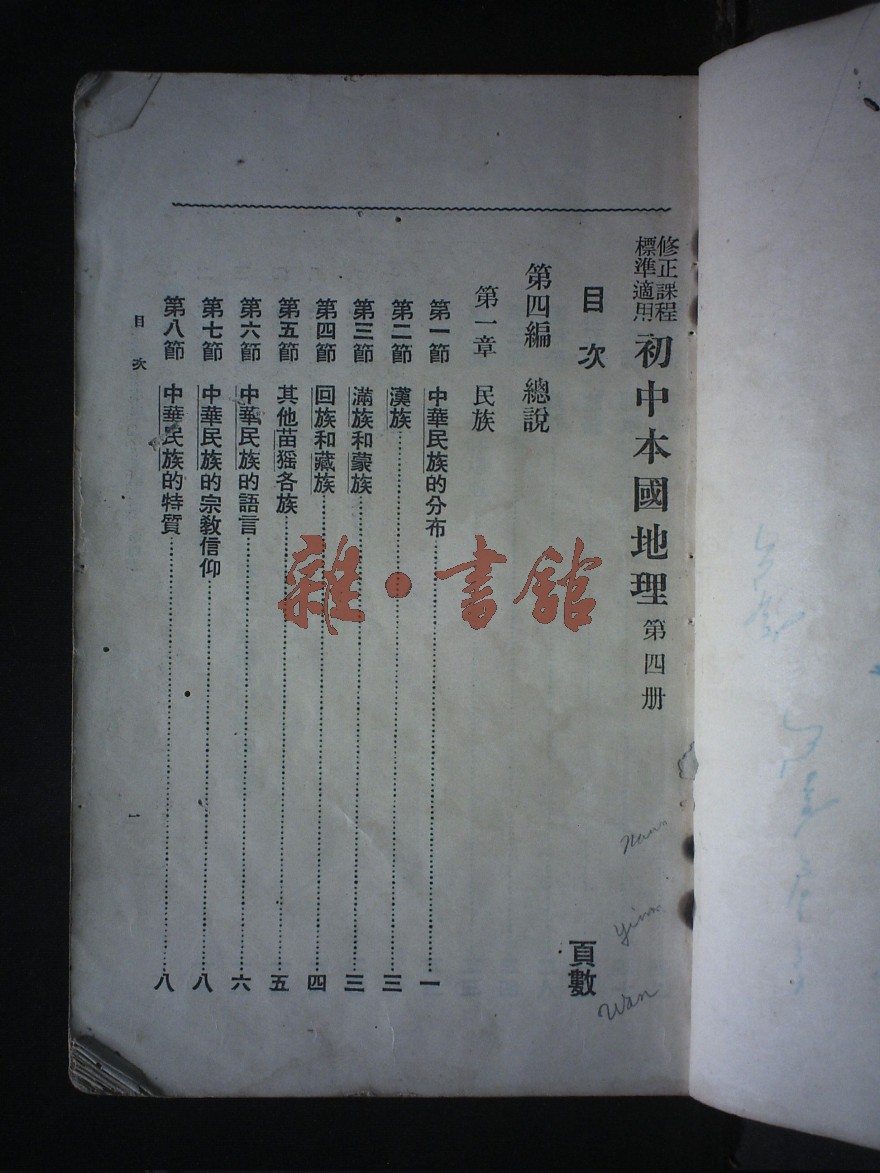 修正課程
標準適用
初中本國地理 第四册
目次
頁數
第四編 總說
第一章 民族
第一節 中華民族的分布 一
第二節 漢族 三
第三節 滿族和蒙族 三
第四節 回族和藏族 四
第五節 其他苗猺各族 五
第六節 中華民族的語言 六
第七節 中華民族的宗教信仰 八
第八節 中華民族的特質 八
目次
一
雜·書館
Wan